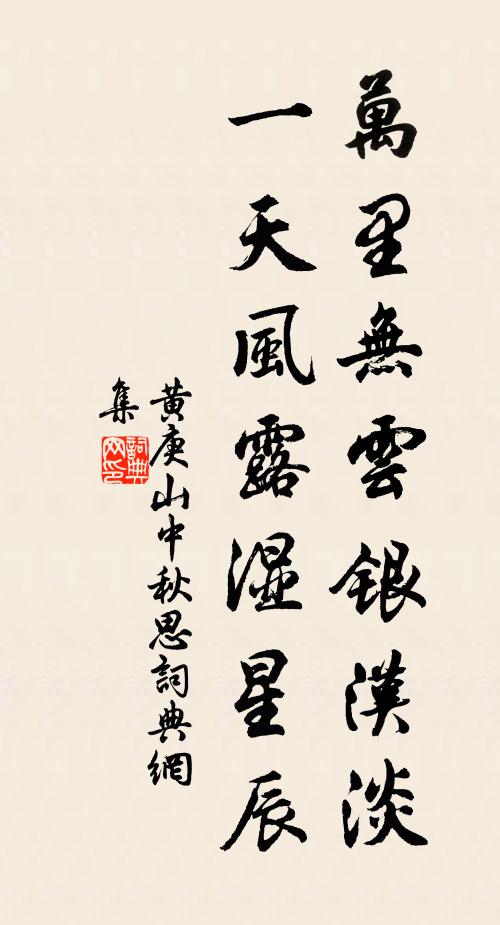 萬里無雲銀漢淡
一天風露濕星辰
黄庚山中秋思詞典網
集
詞典網印